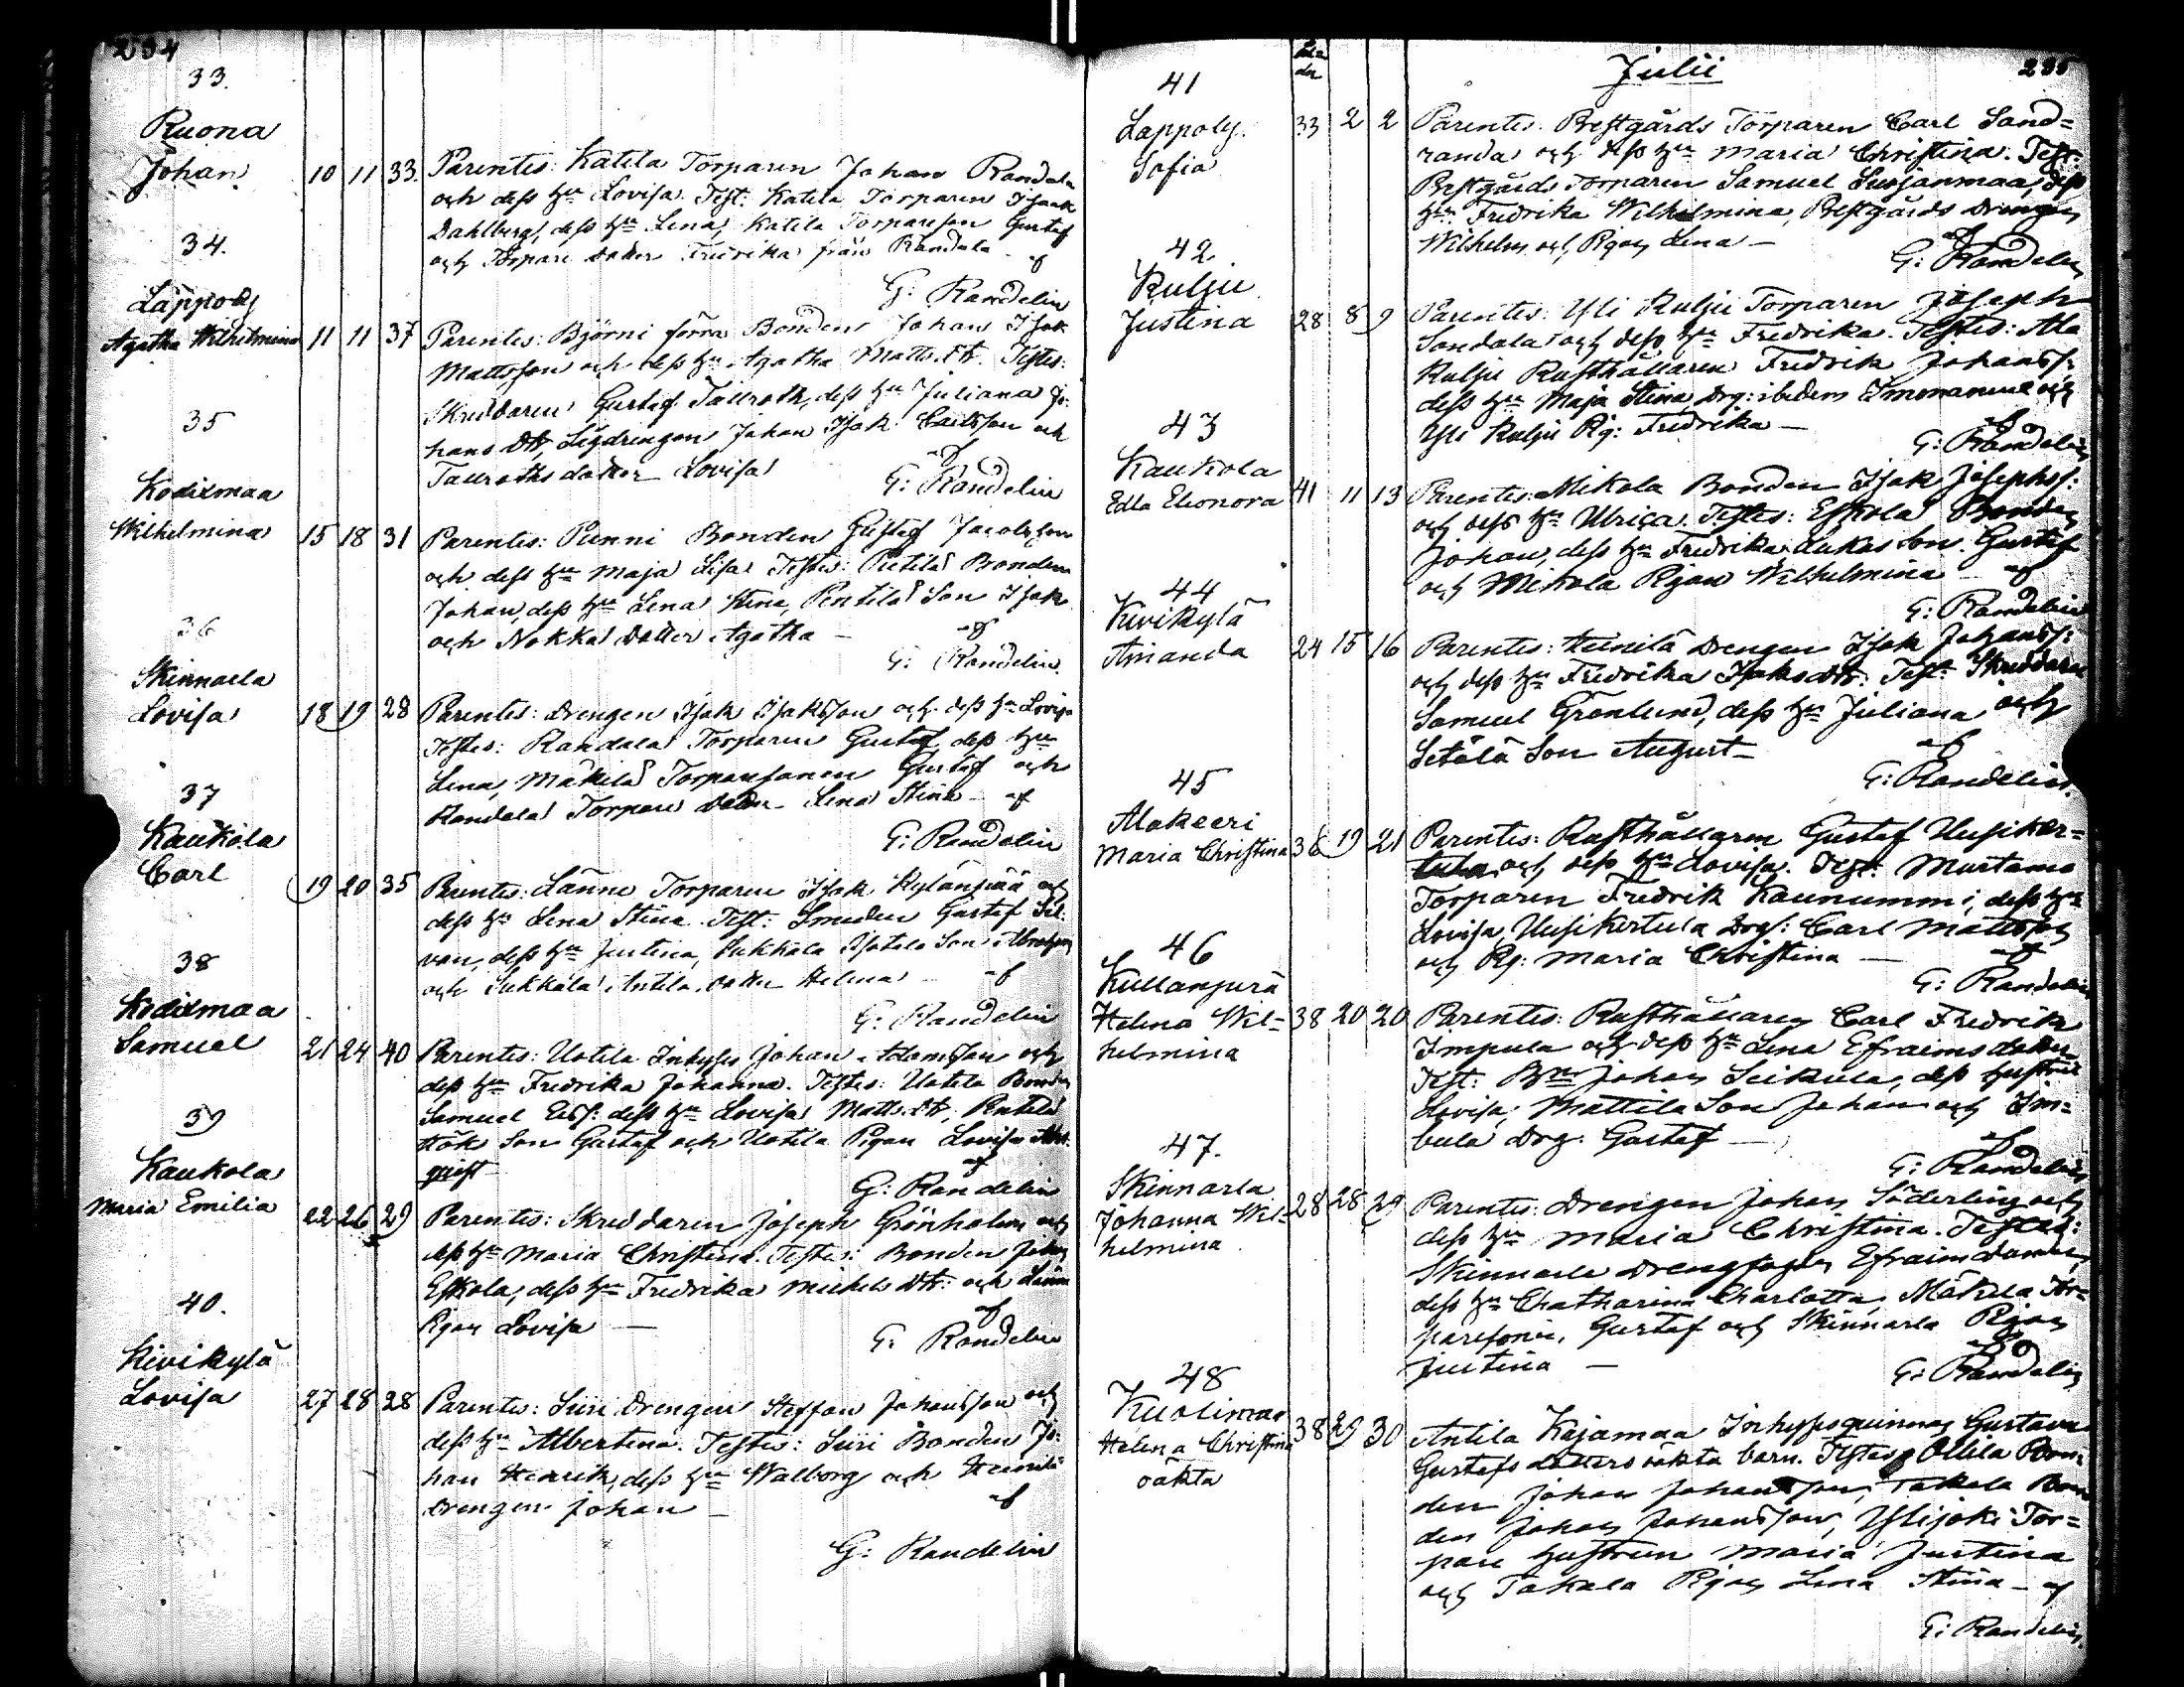 234
33.
Ruona
Johan 10 11 33. Parentes: Katila Torparen Johan Randala
och dess hu Lovisa. Test: Katila Torparen Isaak
Dahlberg, dess hu Lena, Katila Torparson Gustaf
och Torpare Dotter Fredrika från Randala af
G: Randelin
34.
Lappoby
Agatha Wilhelmina 11 11 37 Parentes: Björni förra Bonden Johan Isak
Mattsson och dess hu Agatha Matts Dtr. Testes:
Skreddaren Gustaf Tallroth, dess hu Juliana Jo-
hans Dtr, Legdrengen Johan Isak Carlsson och
Tallroths dotter Lovisa af
G: Randelin
35
Kodixmaa
Wilhelmina 15 18 31 Parentes: Punni Bonden Gustaf Jacobsson
och dess hu Maja Lisa Testes: Pietilä Bonden
Johan, dess hu Lena Stina, Pentilä Son Isak
och Nokka Dotter Agatha — af
G: Randelin
36
Skinnarla
Lovisa 18 19 28 Parentes: Drengen Isak Isaksson och dess hu Lovisa
Testes: Randala Torparen Gustaf, dess hu
Lena, Mäkilä Torparsonen Gustaf och
Randala Torpare Dotter Lena Stina — af
G: Randelin
37
Kaukola
Carl 19 20 35 Parentes: Länne Torparen Isak Kylänpää och
dess hu Lena Stina. Test: Smeden Gustaf Sil-
van, dess hu Justina, Sukkala Isotalo Son Abraham
och Sukkala Antila dotter Helena af
G: Randelin
38
Kodixmaa
Samuel 21 24 40 Parentes: Uotila Inhyses Johan Adamsson och
dess hu Fredrika Johanna. Testes: Uotila Bonden
Samuel dess hu Lovisa Matts Dtr, Pentilä
Hök Son Gustaf och Uotila Pigan Lovisa
af
G: Randelin
39
Kaukola
Maria Emilia 22 26 29 Parentes: Skreddaren Joseph Grönholm och
dess hu Maria Christina. Testes: Bonden Johan
Eskola, dess hu Fredrika Michels Dtr: och Länne
Pigan Lovisa — af
G: Randelin
40.
Kivikylä
Lovisa 27 28 28 Parentes: Siiri Drengen Steffan Johansson och
dess hu Albertina. Testes: Siiri Bonden Jo-
han Henrik, dess hu Walborg och Heinilä
Drengen Johan — af
G: Randelin
Julii 235
41
Lappoby. 33 2 2 Parentes: Prestgårds Torparen Carl Sand-
Sofia randa och dess hu Maria Christina. Test:
Prestgårds Torparen Samuel Susjanmaa, dess
hu Fredrika Wilhelmina, Prestgårds Drengen
Wilhelm och Pigan Lena — af
G: Randelin
42
Kulju
Justina 28 8 9 Parentes: Yli Kulju Torparen Joseph
Sondala och dess hu Fredrika. Testes: Ala
Kulju Rusthållaren Fredrik Johanss:
dess hu Maja Stina, Drg: ibidem Immanuel och
Yli Kulju Pig: Fredrika — af
G: Randelin
43
Kaukola
Edla Eleonora 41 11 13 Parentes: Mikola Bonden Isak Josephss:
och dess hu Ulrica. Testes: Eskola Bonden
Johan, dess hu Fredrika, Lukas Son Gustaf
och Mikola Pigan Wilhelmina — af
G: Randelin
44
Kivikylä
Amanda 24 15 16 Parentes: Heinilä Drengen Isak Johanss:
och dess hu Fredrika Isaks dtr: Test: Skreddaren
Samuel Grönlund, dess hu Juliana och
Setälä Son August — af
G: Randelin
45
Alakeeri
Maria Christina 36 19 21 Parentes: Rusthållaren Gustaf Uusiker-
tula och dess hu Lovisa. Test: Murtamo
Torparen Fredrik Kaunummi, dess hu
Lovisa, Uusikertula Drg: Carl Mattsson
och Pig: Maria Christina — af
G: Randelin
46
Kullanperä
Helena Wil- 38 20 20 Parentes: Rusthållaren Carl Fredrik
helmina Impula och dess hu Lena Efraims dotter
Test: Bn Johan Seikula, dess hustru
Lovisa, Mattila Son Johan och Im-
bula Drg. Gustaf — af
G: Randelin
47.
Skinnarla
Johanna Wil- 28 28 29 Parentes: Drengen Johan Söderling och
helmina dess hu Maria Christina. Testes:
Skinnarla Efraim
dess hu Chatharina Charlotta, Mäkilä Tor-
paresonen Gustaf och Skinnarla Pigan
Justina — af
G: Randelin
48
Kuolimaa
Helena Christina 38 29 30 Antila Kajamaa Inhysesquinnan Gustava
oäkta Gustafs dotters oäkta barn. Testes: Ollila Bon-
den Johan Johansson, Takala Bon
den Johan Johansson, Ylijoki Tor-
pare hustrun Maria Justina
och Takala Pigan Lena Stina — af
G: Randelin